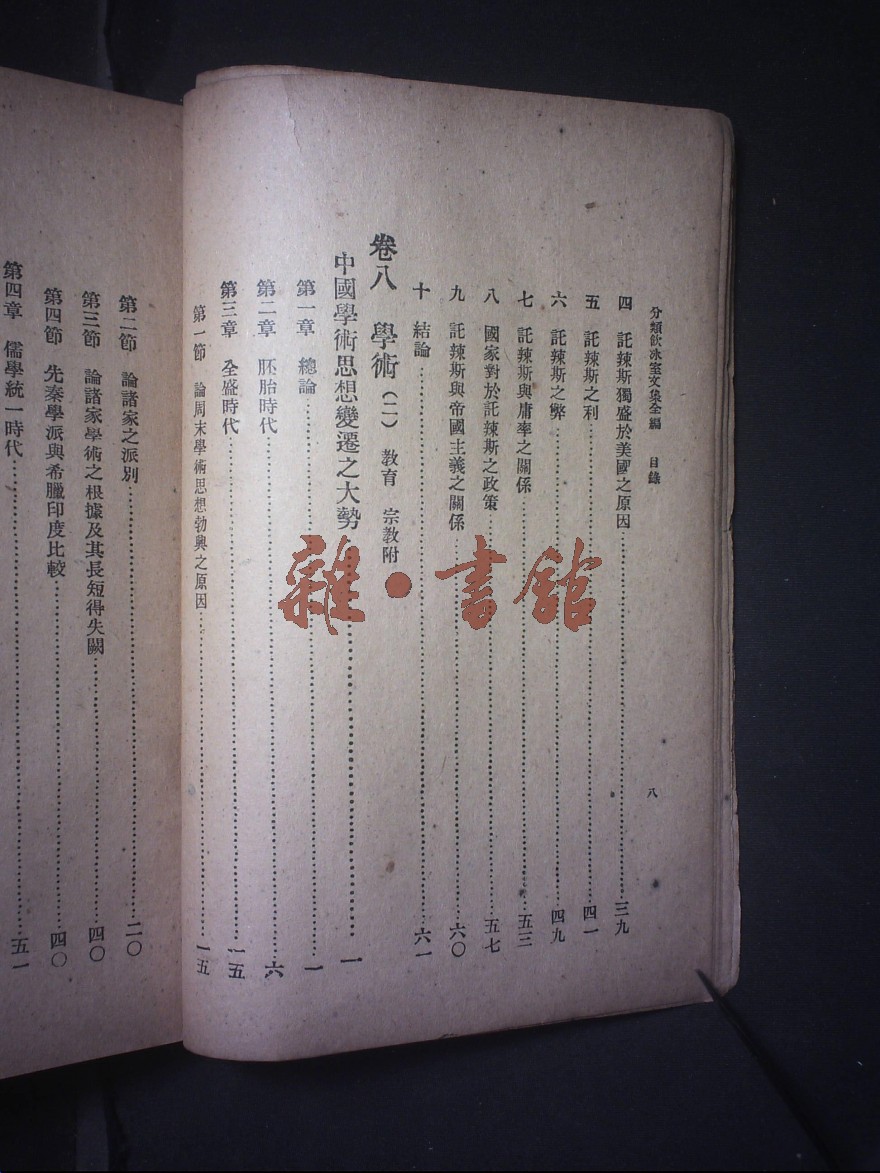 分類飲冰室文集全編　目錄　八
四　託辣斯獨盛於美國之原因……三九
五　託辣斯之利……四一
六　託辣斯之弊……四九
七　託辣斯與庸率之關係……五三
八　國家對於託辣斯之政策……五七
九　託辣斯與帝國主義之關係……六〇
十　結論……六一
卷八　學術(二)　教育　宗教附
中國學術思想變遷之大勢……一
第一章　總論……一
第二章　胚胎時代……六
第三章　全盛時代……一五
第一節　論周末學術思想勃興之原因……一五
第二節　論諸家之派別……二〇
第三節　論諸家學術之根據及其長短得失闕……四〇
第四節　先秦學派與希臘印度比較……四〇
第四章　儒學統一時代……五一
雜·書館